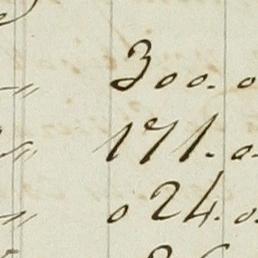 〃 300. 0
〃 171. 0.
〃 024. 0.